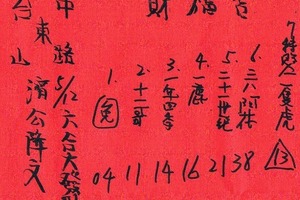 財福
中路5/12六合大發
台東山濟公降文
1.兔
2.十一哥
3.一年四季
4.一鹿
5.二十一世紀
6.三八阿花
二隻虎
13
04 11 14 16 21 38